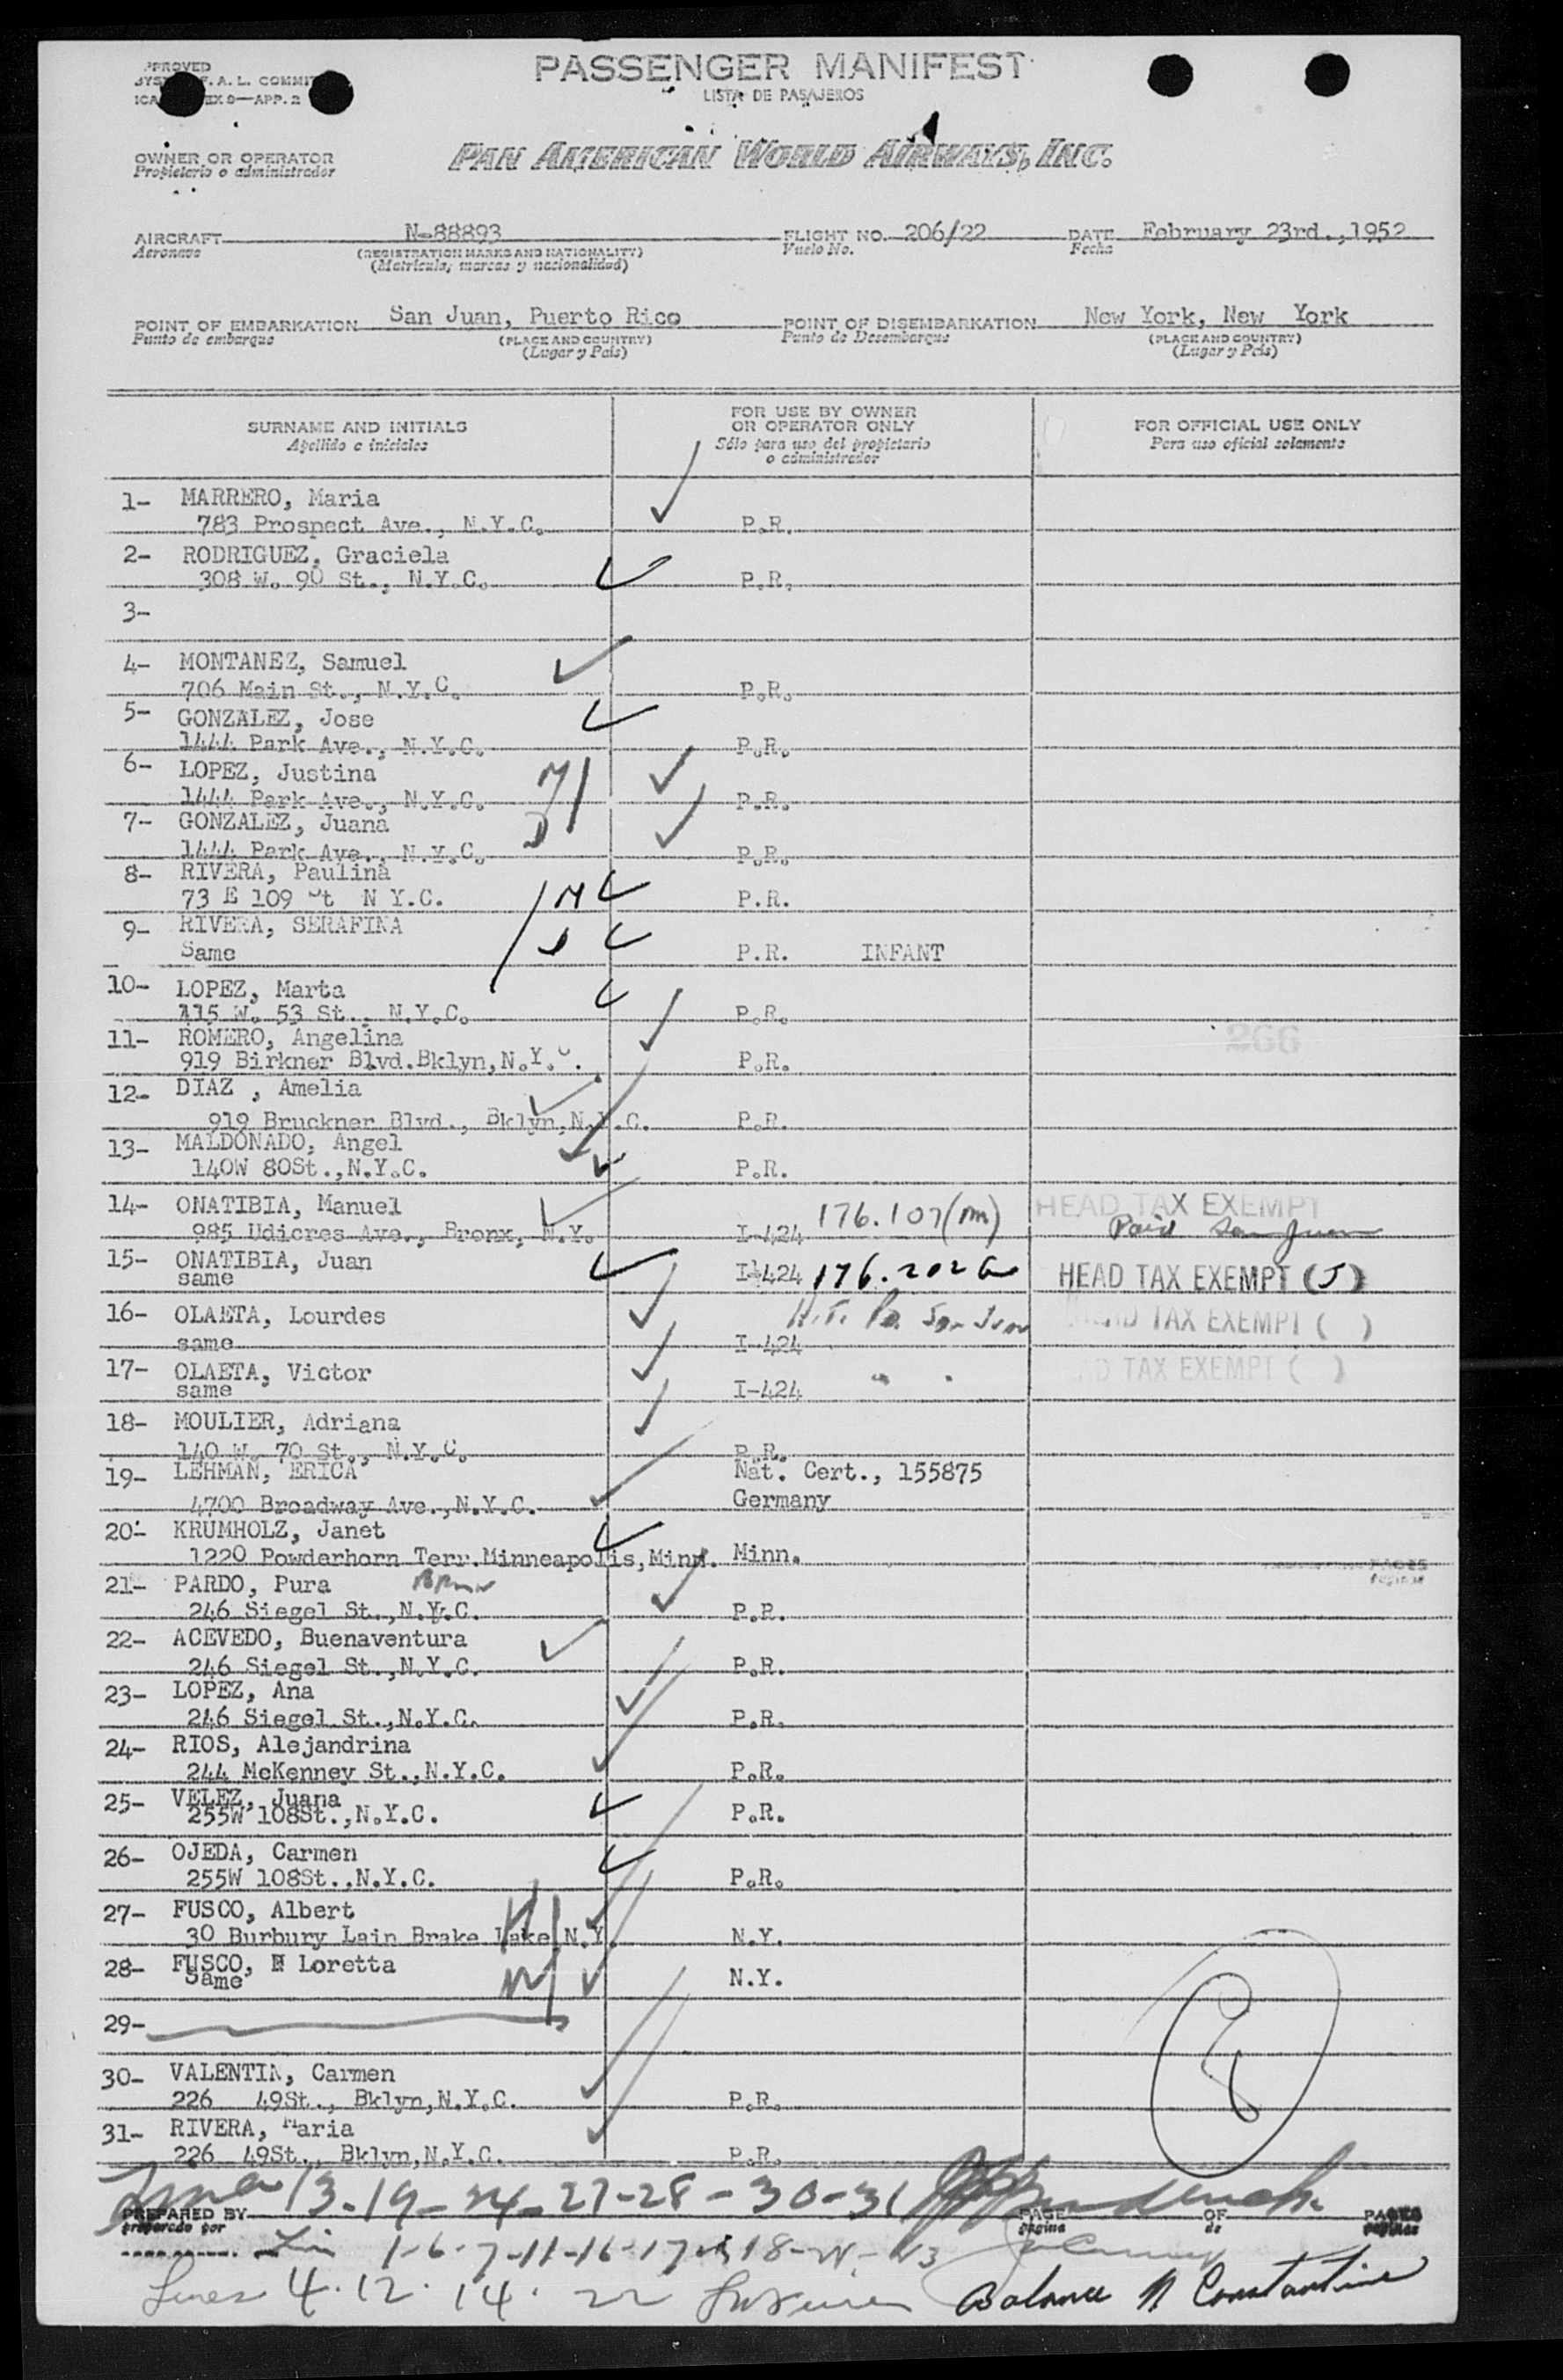 PASSENGER MANIFEST
LISTA DE PASAJEROS
F.A.L. COMMIT
9—APP. 2
OWNER OR OPERATOR
Propietario o administrador
PAN AMERICAN WORLD AIRWAYS, INC.
AIRCRAFT N-88893 FLIGHT NO. 206/22 DATE February 23rd.,1952
Aeronave (REGISTRATION MARKS AND NATIONALITY) Vuelo No. Fecha
(Matricula, marcas y nacionalidad)
POINT OF EMBARKATION San Juan, Puerto Rico POINT OF DISEMBARKATION New York, New York
Punto de embarque (PLACE AND COUNTRY) Punto de Desembarque (PLACE AND COUNTRY)
(Lugar y País) (Lugar y País)
SURNAME AND INITIALS
Apellido e iniciales
FOR USE BY OWNER
OR OPERATOR ONLY
Sólo para uso del propietario
o administrador
FOR OFFICIAL USE ONLY
Para uso oficial solamente
1- MARRERO, Maria
783 Prospect Ave., N.Y.C. P.R.
2- RODRIGUEZ, Graciela
308 W. 90 St., N.Y.C. P.R.
3-
4- MONTANEZ, Samuel
706 Main St., N.Y.C. P.R.
5- GONZALEZ, Jose
1444 Park Ave., N.Y.C. P.R.
6- LOPEZ, Justina M
1444 Park Ave., N.Y.C. P.R.
7- GONZALEZ, Juana D
1444 Park Ave., N.Y.C. P.R.
8- RIVERA, Paulina
73 E 109 St N Y.C. M P.R.
9- RIVERA, SERAFINA
Same P.R. INFANT
10- LOPEZ, Marta
415 W. 53 St., N.Y.C. P.R.
11- ROMERO, Angelina 266
919 Birkner Blvd.Bklyn,N.Y.C. P.R.
12- DIAZ , Amelia
919 Bruckner Blvd., Bklyn,N.Y.C. P.R.
13- MALDONADO, Angel
140W 80St.,N.Y.C. P.R.
14- ONATIBIA, Manuel 176.107(m) HEAD TAX EXEMPT
985 Udicres Ave., Bronx, N.Y. I-424 Paid San Juan
15- ONATIBIA, Juan
same I-424 176.202 HEAD TAX EXEMPT (J)
16- OLAETA, Lourdes H.T. Pd. San Juan HEAD TAX EXEMPT ( )
same I-424
17- OLAETA, Victor HEAD TAX EXEMPT ( )
same I-424 " "
18- MOULIER, Adriana
140 W. 70 St., N.Y.C. P.R.
19- LEHMAN, ERICA Nat. Cert., 155875
4700 Broadway Ave.,N.Y.C. Germany
20- KRUMHOLZ, Janet
1220 Powderhorn Terr.Minneapolis,Minn. Minn.
21- PARDO, Pura
246 Siegel St.,N.Y.C. P.R.
22- ACEVEDO, Buenaventura
246 Siegel St.,N.Y.C. P.R.
23- LOPEZ, Ana
246 Siegel St.,N.Y.C. P.R.
24- RIOS, Alejandrina
244 McKenney St.,N.Y.C. P.R.
25- VELEZ, Juana
255W 108St.,N.Y.C. P.R.
26- OJEDA, Carmen
255W 108St.,N.Y.C. P.R.
27- FUSCO, Albert H
30 Burbury Lain Brake Lake N.Y. N.Y.
28- FUSCO, Loretta W
Same N.Y.
29-
30- VALENTIN, Carmen
226 49St., Bklyn,N.Y.C. P.R.
31- RIVERA, Maria
226 49St., Bklyn,N.Y.C. P.R.
Lines 13-19-24-27-28-30-31
PREPARED BY PAGE OF PAGES
preparado por página de páginas
1-6-7-11-16-17-18-
Lines 4. 12. 14. 22 Balance N Constantine